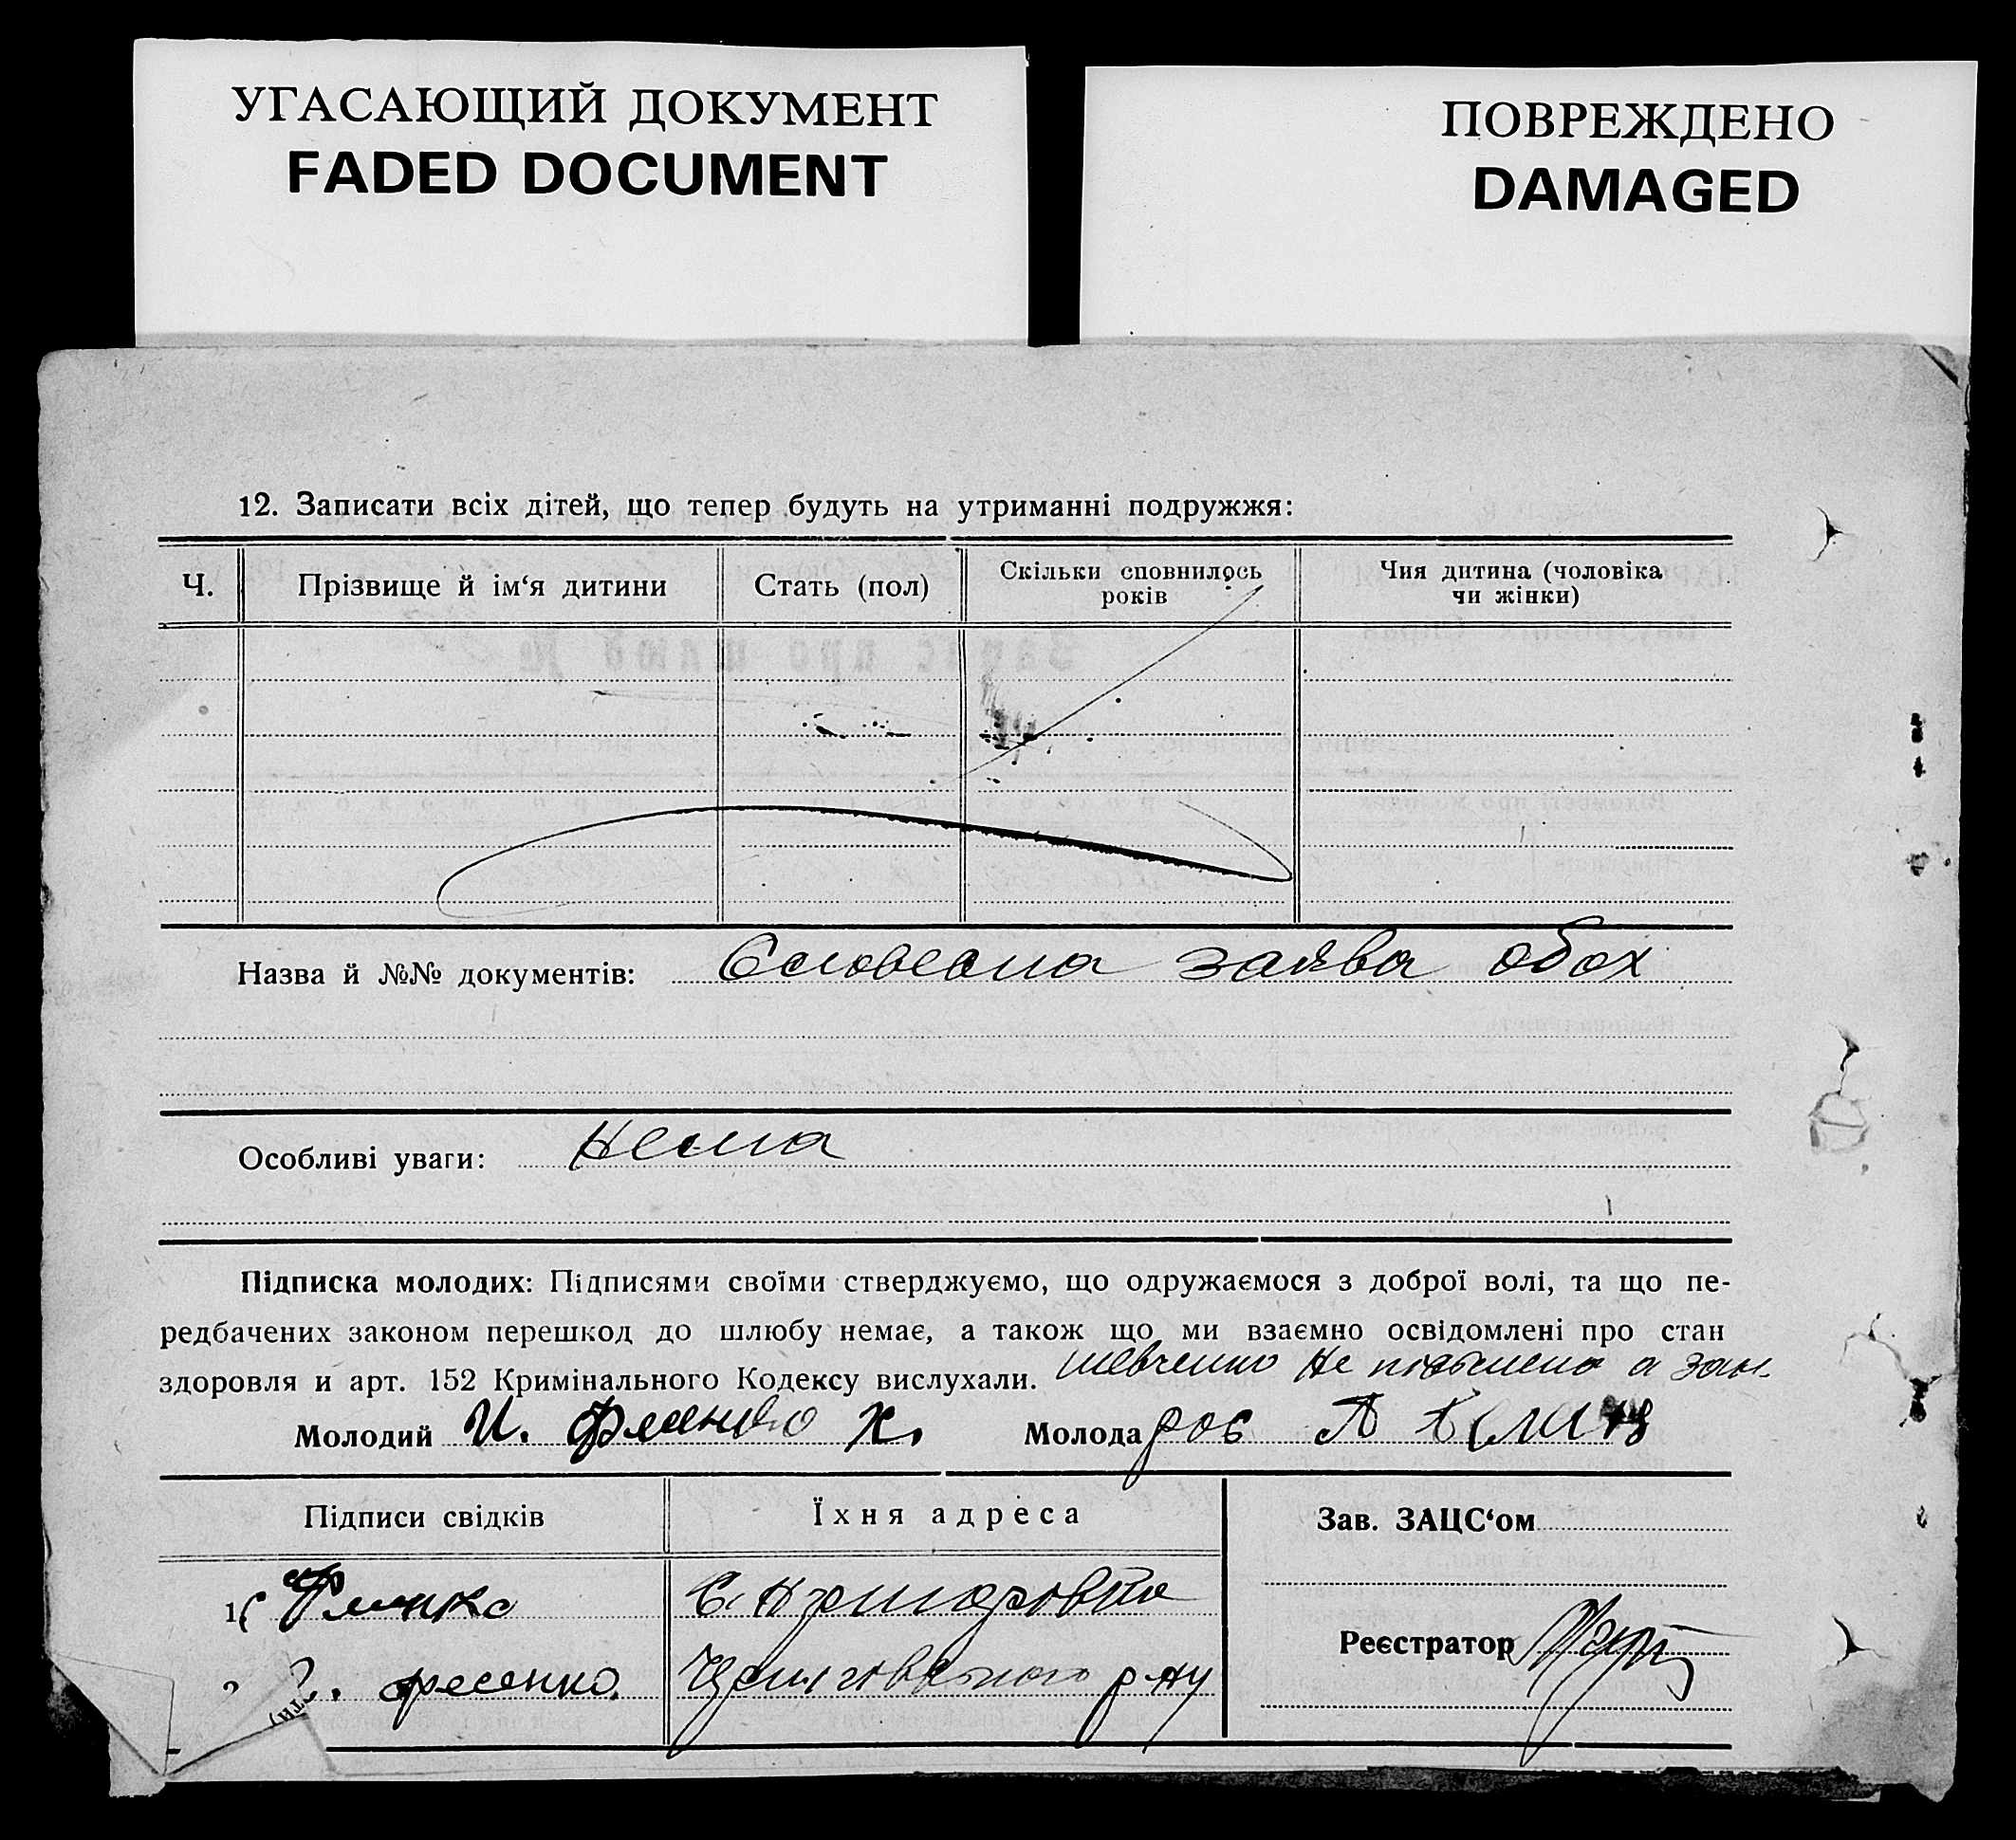 УГАСАЮЩИЙ ДОКУМЕНТ
FADED DOCUMENT
ПОВРЕЖДЕНО
DAMAGED
12. Записати всіх дітей, що тепер будуть на утриманні подружжя:
Ч. Прізвище й ім‘я дитини Стать (пол) Скільки сповнилось років Чия дитина (чоловіка чи жінки)
Назва й №№ документів: Словесна заява обох
Особливі уваги: Нема
Підписка молодих: Підписями своїми стверджуємо, що одружаємося з доброї волі, та що пе-
редбачених законом перешкод до шлюбу немає, а також що ми взаємно освідомлені про стан
здоровля й арт. 152 Кримінального Кодексу вислухали. Шевченко не письмена а за
Молодий И. Фменко Х. Молода
Підписи свідків Їхня адреса Зав. ЗАЦС‘ом
1 Фменко С.
Реєстратор
2 р-ну